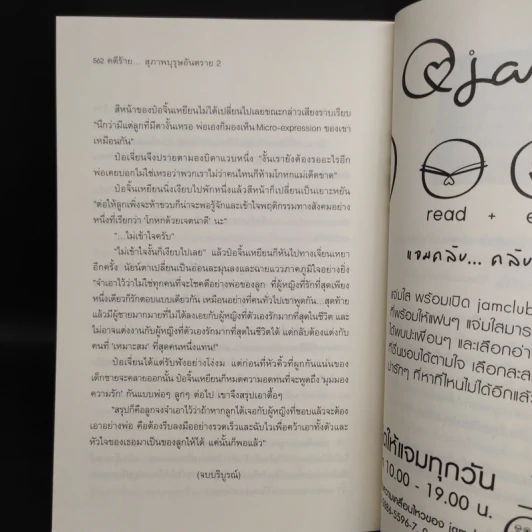 562 คดีร้าย... สุภาพบุรุษอันตราย 2
สีหน้าของป๋อจิ้นเหยียนไม่ได้เปลี่ยนไปเลยขณะกล่าวเสียงราบเรียบ
"นึกว่ามีแต่ลูกที่มีตางั้นเหรอ พ่อเองก็มองเห็น Micro-expression ของเขา
เหมือนกัน"
ป๋อเจี่ยนจึงปรายตามองบิดาแวบหนึ่ง "งั้นเรายังต้องรออะไรอีก
พ่อเคยบอกไม่ใช่เหรอว่าพวกเราไม่ว่าคนไหนก็ห้ามโกหกแม่เด็ดขาด"
ป๋อจิ้นเหยียนนิ่งเงียบไปพักหนึ่งแล้วสีหน้าก็เปลี่ยนเป็นเยาะหยัน
"ต่อให้ลูกเพิ่งจะห้าขวบก็น่าจะพอรู้จักและเข้าใจพฤติกรรมทางสังคมอย่าง
หนึ่งที่เรียกว่า 'โกหกด้วยเจตนาดี' นะ"
"...ไม่เข้าใจครับ"
"ไม่เข้าใจงั้นก็เงียบไปเลย" แล้วป๋อจิ้นเหยียนก็หันไปทางเจี่ยนเหยา
อีกครั้ง นัยน์ตาเปลี่ยนเป็นอ่อนละมุนลงและฉายแววภาคภูมิใจอย่างยิ่ง
"จำเอาไว้ว่าไม่ใช่ทุกคนที่จะโชคดีอย่างพ่อของลูก ที่ผู้หญิงที่รักที่สุดเพียง
หนึ่งเดียวก็รักตอบแบบเดียวกัน เหมือนอย่างที่คนทั่วไปเขาพูดกัน...สุดท้าย
แล้วมีผู้ชายมากมายที่ไม่ได้ลงเอยกับผู้หญิงที่ตัวเองรักมากที่สุดในชีวิต และ
ไม่อาจแต่งงานกับผู้หญิงที่ตัวเองรักมากที่สุดในชีวิตได้ แต่กลับต้องแต่งกับ
คนที่ 'เหมาะสม' ที่สุดคนหนึ่งแทน"
ป๋อเจี่ยนได้แต่รับฟังอย่างโง่งม แต่ก่อนที่หัวคิ้วที่ผูกกันแน่นของ
เด็กชายจะคลายออกนั้น ป๋อจิ้นเหยียนก็หมดความอดทนที่จะพูดถึง 'มุมมอง
ความรัก' กันแบบพ่อๆ ลูกๆ ต่อไป เขาจึงสรุปเอาดื้อๆ
"สรุปก็คือลูกจงจำเอาไว้ว่าถ้าหากลูกได้เจอกับผู้หญิงที่ชอบแล้วจะต้อง
เอาอย่างพ่อ คือต้องรีบลงมืออย่างรวดเร็วและฉับไวเพื่อคว้าเอาทั้งตัวและ
หัวใจของเธอมาเป็นของลูกให้ได้ แค่นั้นก็พอแล้ว"
(จบบริบูรณ์)
@ja
read + e
แจมคลับ... คลับ
แจ่มใส พร้อมเปิด jamclub
ที่พร้อมให้แฟนๆ แจ่มใสมาร
ได้พบปะเพื่อนๆ และเลือกอ่า
ที่ชื่นชอบได้ตามใจ เลือกละล
น่ารักๆ ที่หาที่ไหนไม่ได้อีกแล้
ให้แจมทุกวัน
10.00 - 19.00 น.